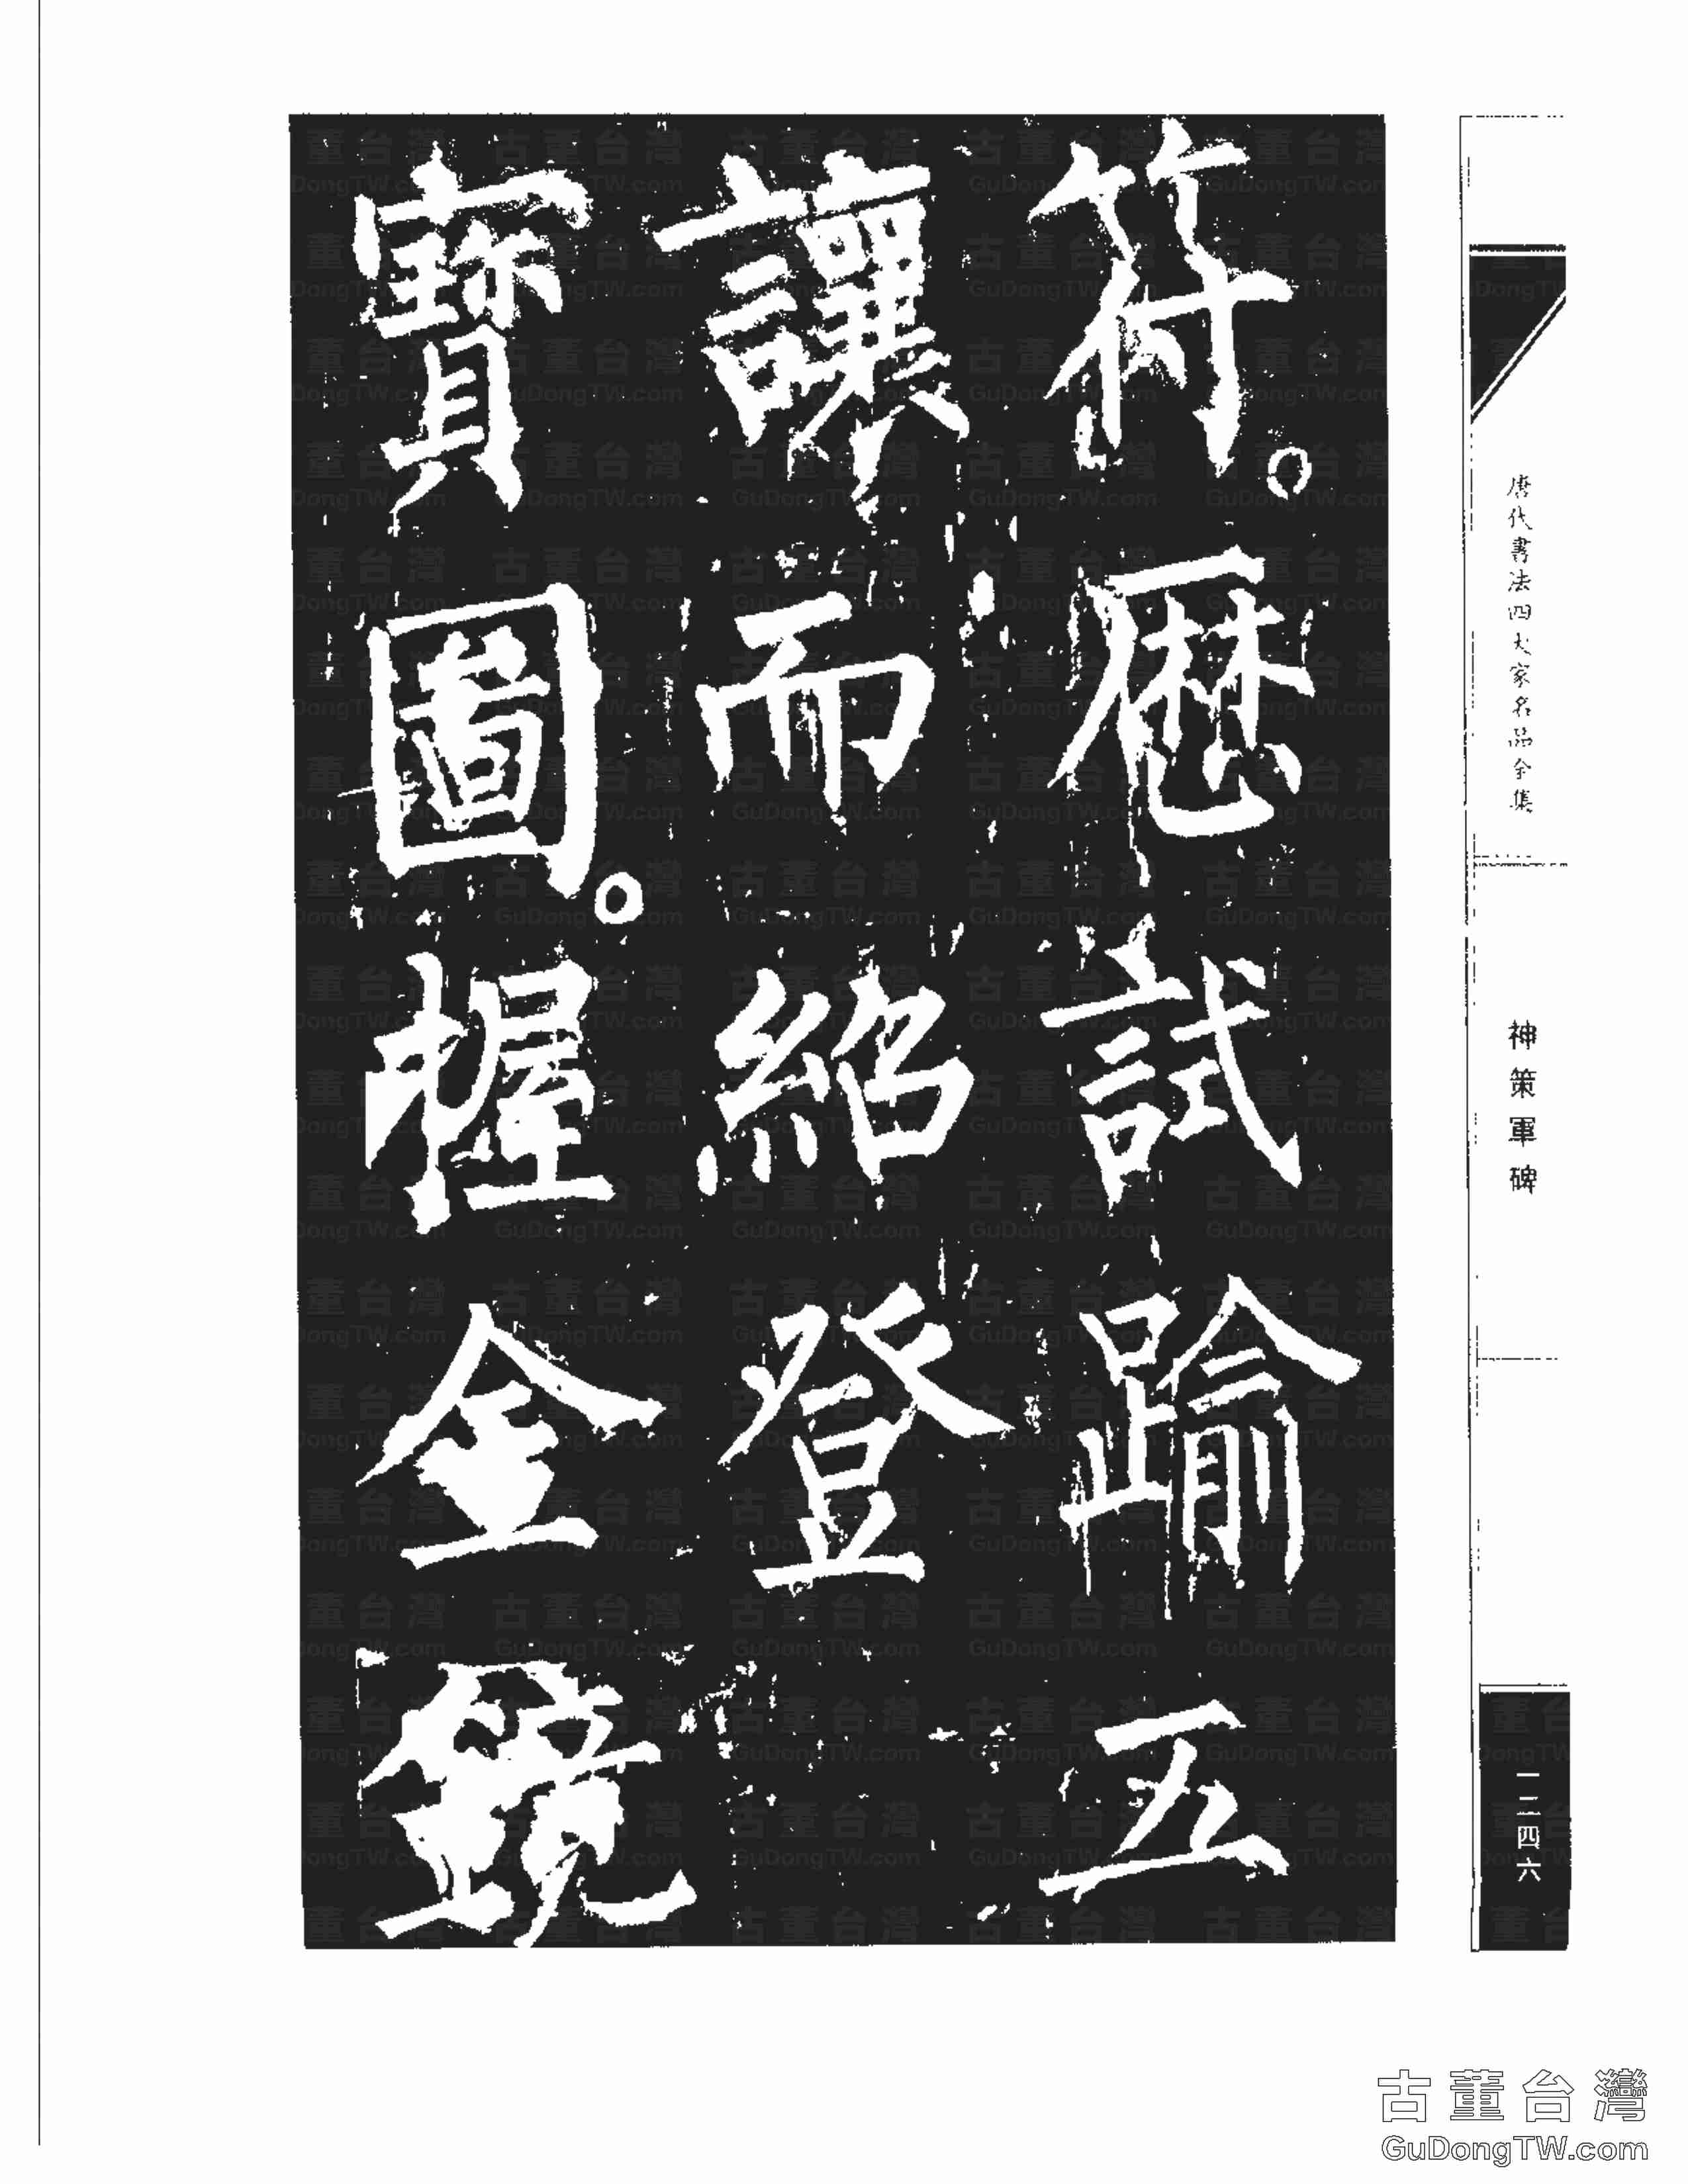 符。歷試踰五
讓而紹登
寶圖。握金鏡
唐代書法四大家名品全集
神策軍碑
一二四六
古董台灣
GuDongTW.com